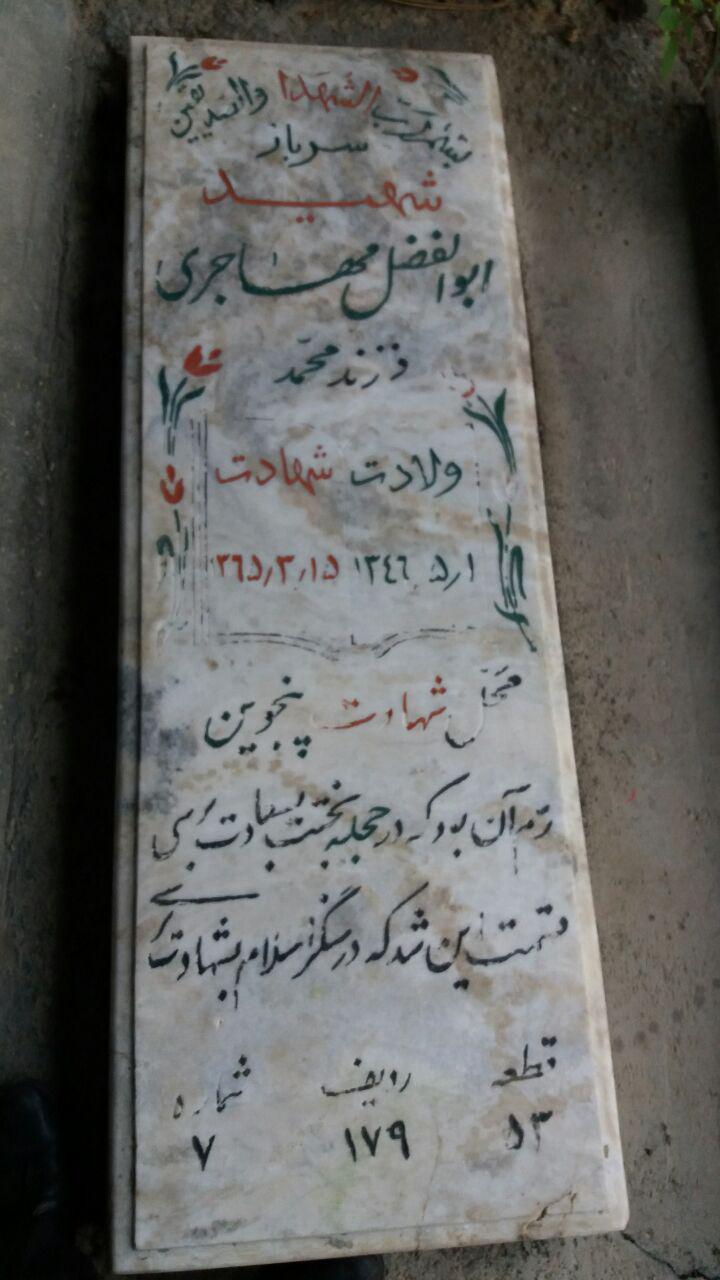 بسم رب الشهدا والصدیقین
سرباز
شهید
ابوالفضل مهاجری
فرزند محمد
ولادت شهادت
۱٫۵٫۱۳۴۶ ۱۵٫۳٫۳۶۵
محل شهادت پنجوین
آن بود که در حجله بختت برسی
قسمت این شد که در سنگر اسلام بشهادت برسی
قطعه ردیف شماره
۵۳ ۱۷۹ ۷